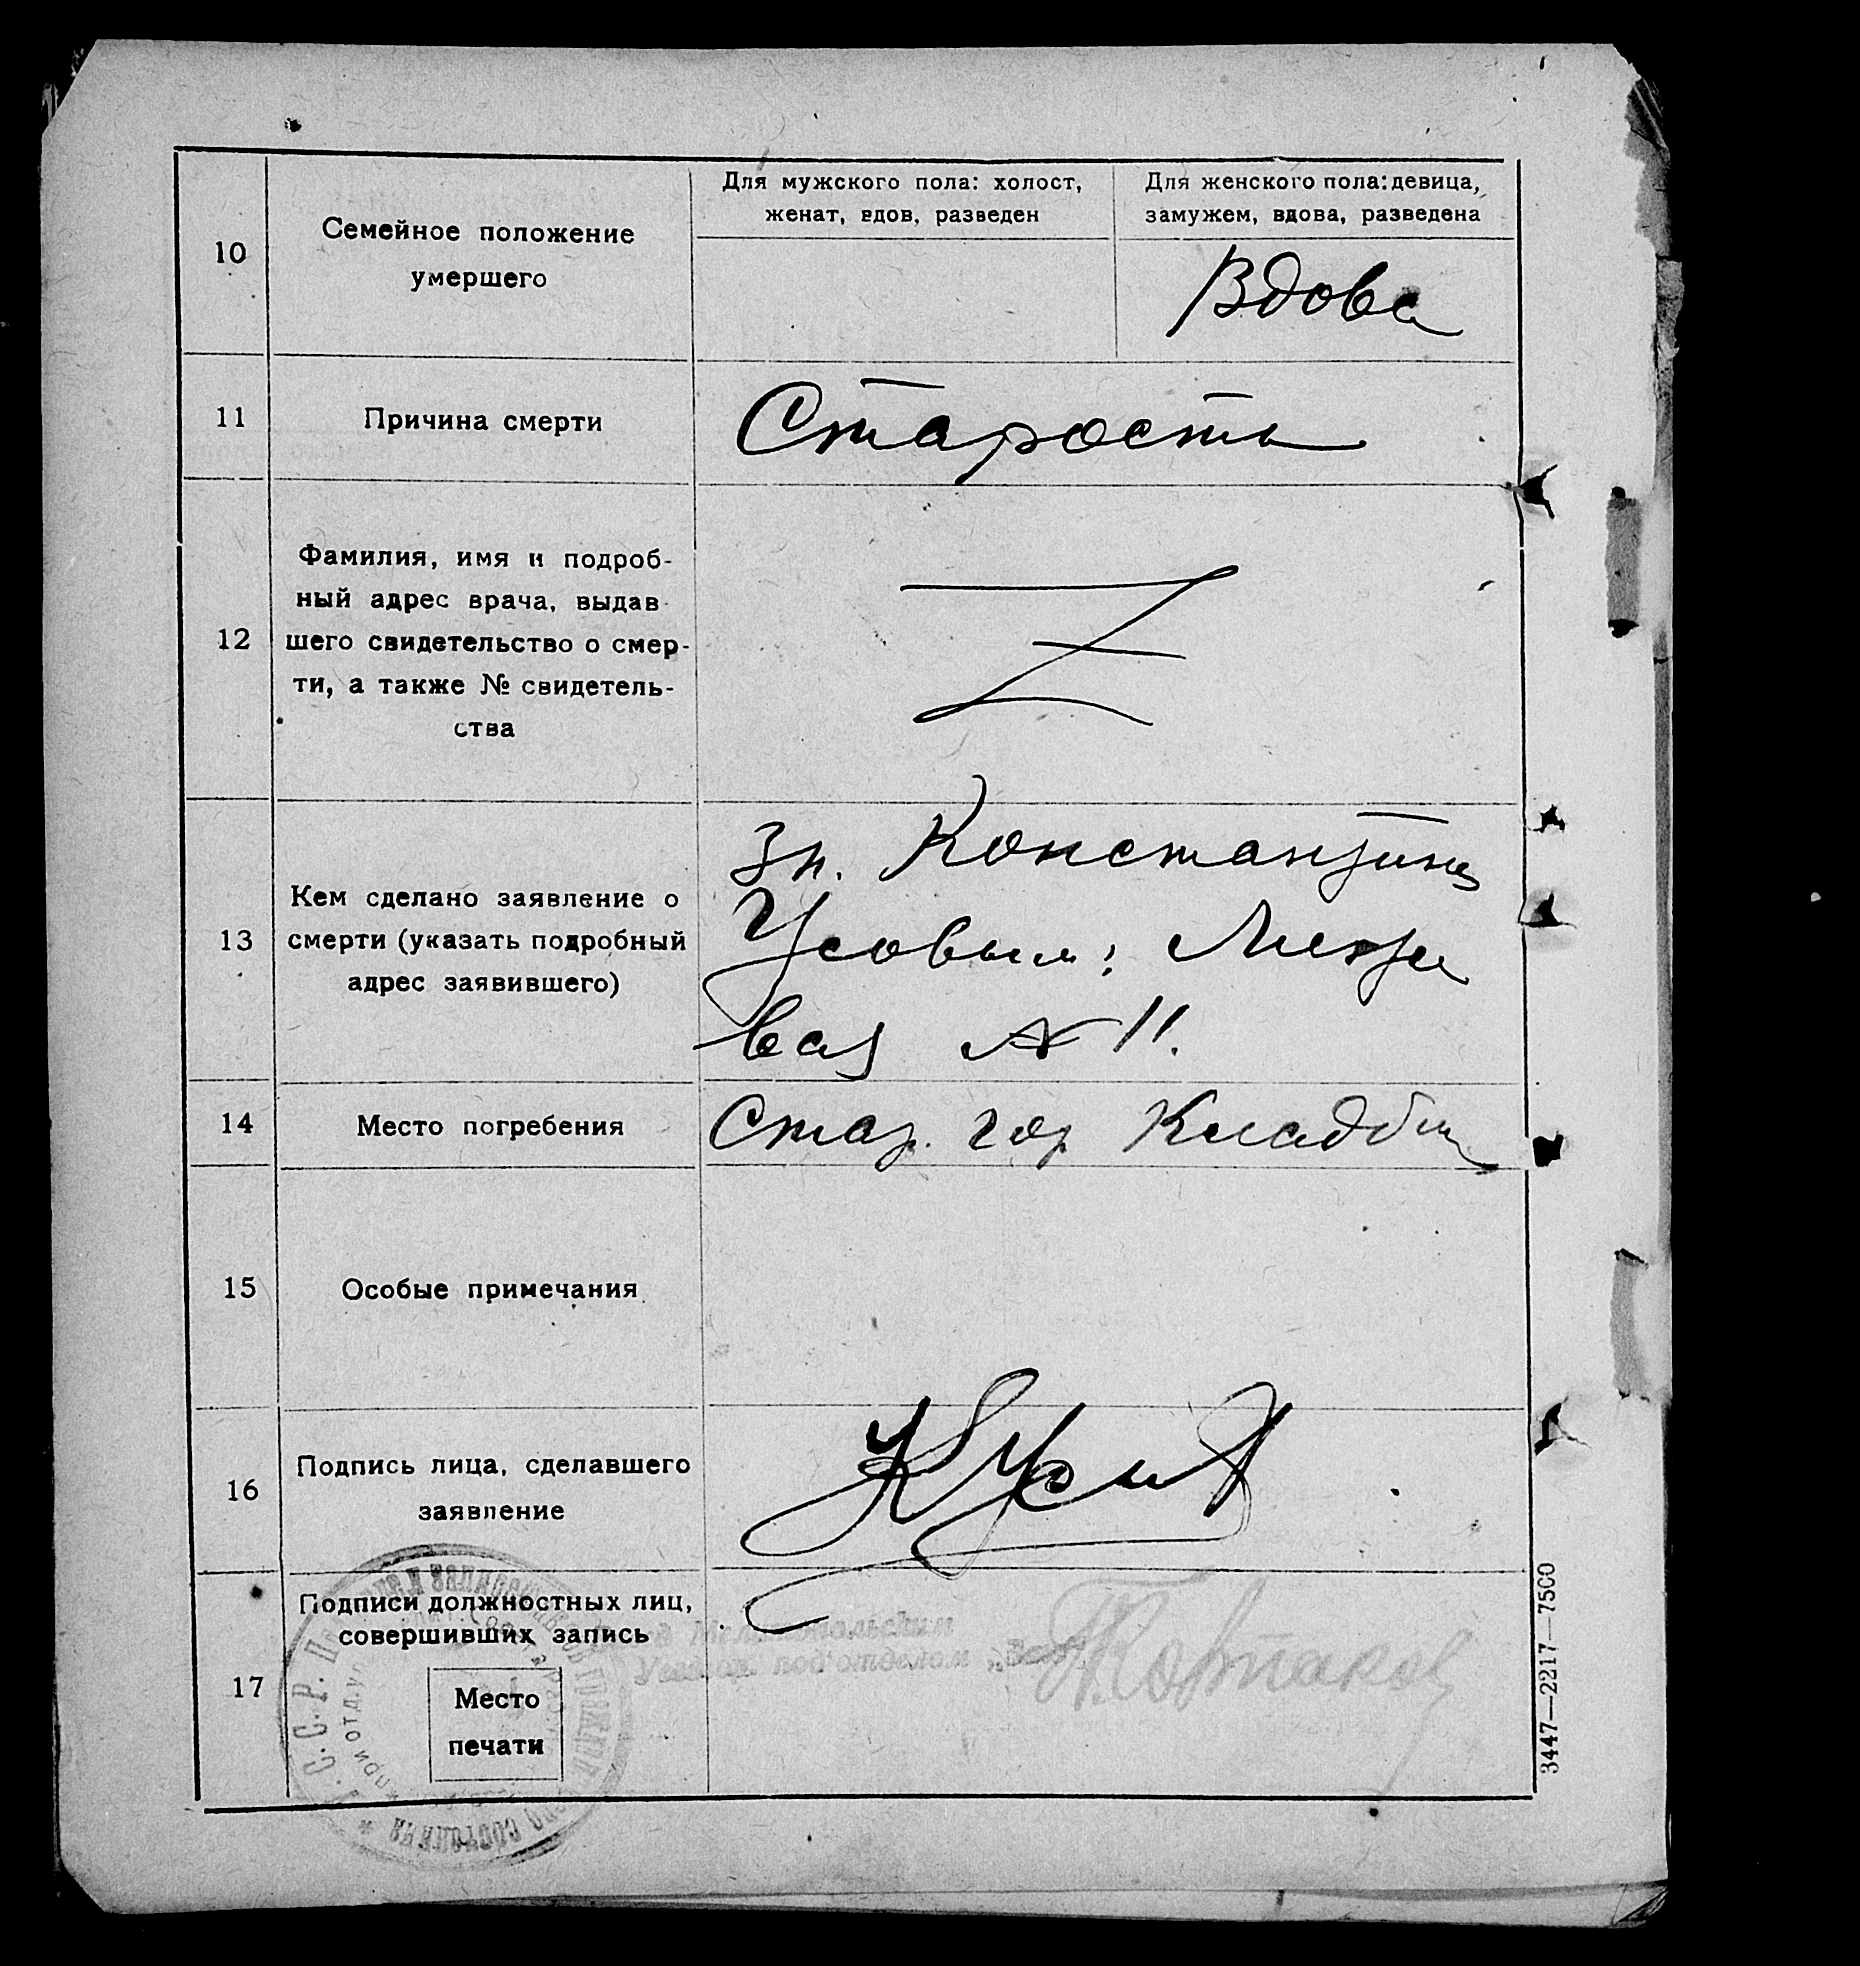 10
Семейное положение
умершего
Для мужского пола: холост,
женат, вдов, разведен
Для женского пола: девица,
замужем, вдова, разведена
Вдова
11
Причина смерти
Старость
12
Фамилия, имя и подроб-
ный адрес врача, выдав
шего свидетельство о смер-
ти, а также № свидетель-
ства
Z
13
Кем сделано заявление о
смерти (указать подробный
адрес заявившего)
гр. Константин
Усовым:
вая № 11.
14
Место погребения
Стар. гор Кладбищ
15
Особые примечания
16
Подпись лица, сделавшего
заявление
17
Подписи должностных лиц,
совершивших запись
Место
печати
Мелитопольским
подотделом
С.С.Р.
состояния
3447—2217—7500